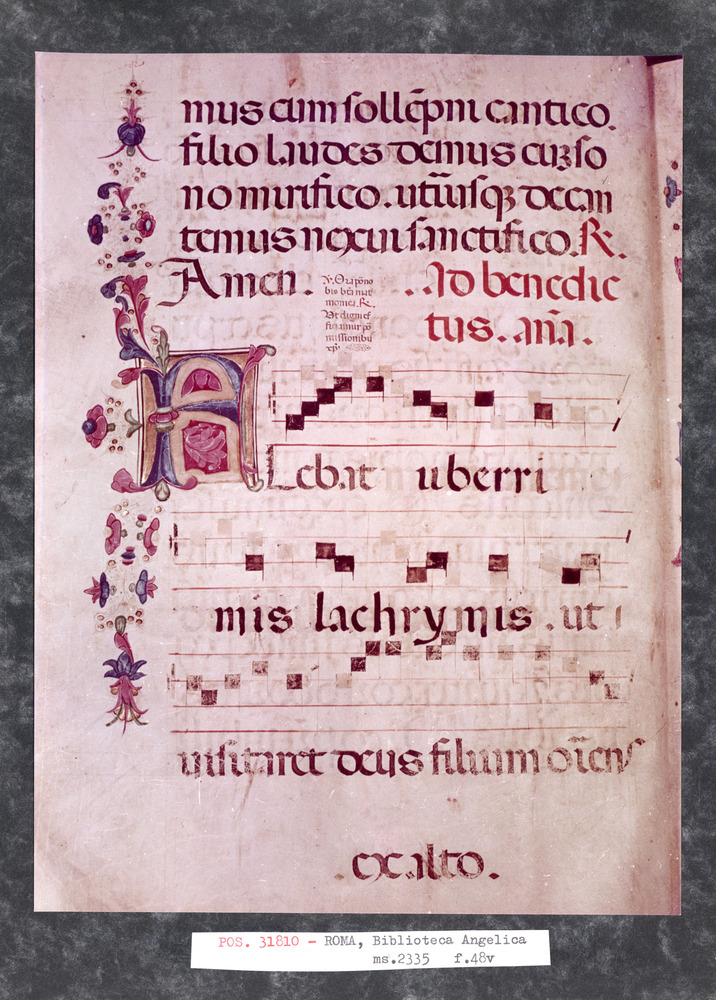 mus cum sollēpni cantico.
filio laudes demus eius so
no mirifico. utriusq; decan
temus nexui sanctifico. R.
Amen. Ad benedic
℣. Ora p̄ no
bis btā mat
monica. R.
Vt digni ef
ficiamur p̄
missionibu
xp̄i
tus. an̄a.
FLebat uberri
mis lachrymis . ut
uisitaret deus filium oīens
. ex alto.
POS. 31810 - ROMA, Biblioteca Angelica
ms.2335 f.48v